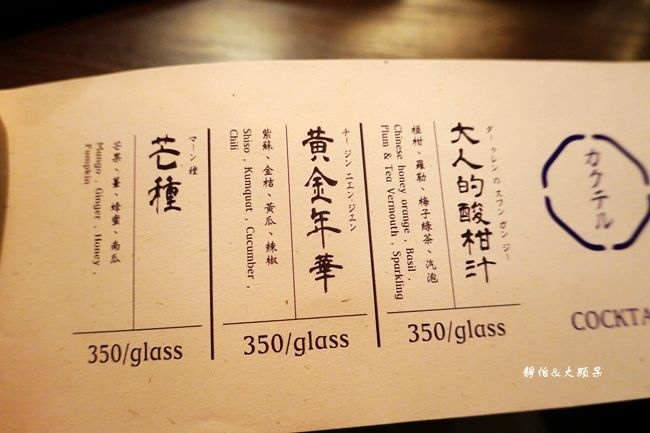 カクテル
COCKTA
大人的酸柑汁
椪柑、羅勒、梅子綠茶、汽泡
Chinese honey orange, Basil,
Plum & Tea Vermouth, Sparkling
350/glass
黃金年華
紫蘇、金桔、黃瓜、辣椒
Shiso, Kumquat, Cucumber,
Chili
350/glass
マーン種
芒種
芒果、薑、蜂蜜、南瓜
Mango, Ginger, Honey,
Pumpkin
350/glass
靜怡&大顆呆